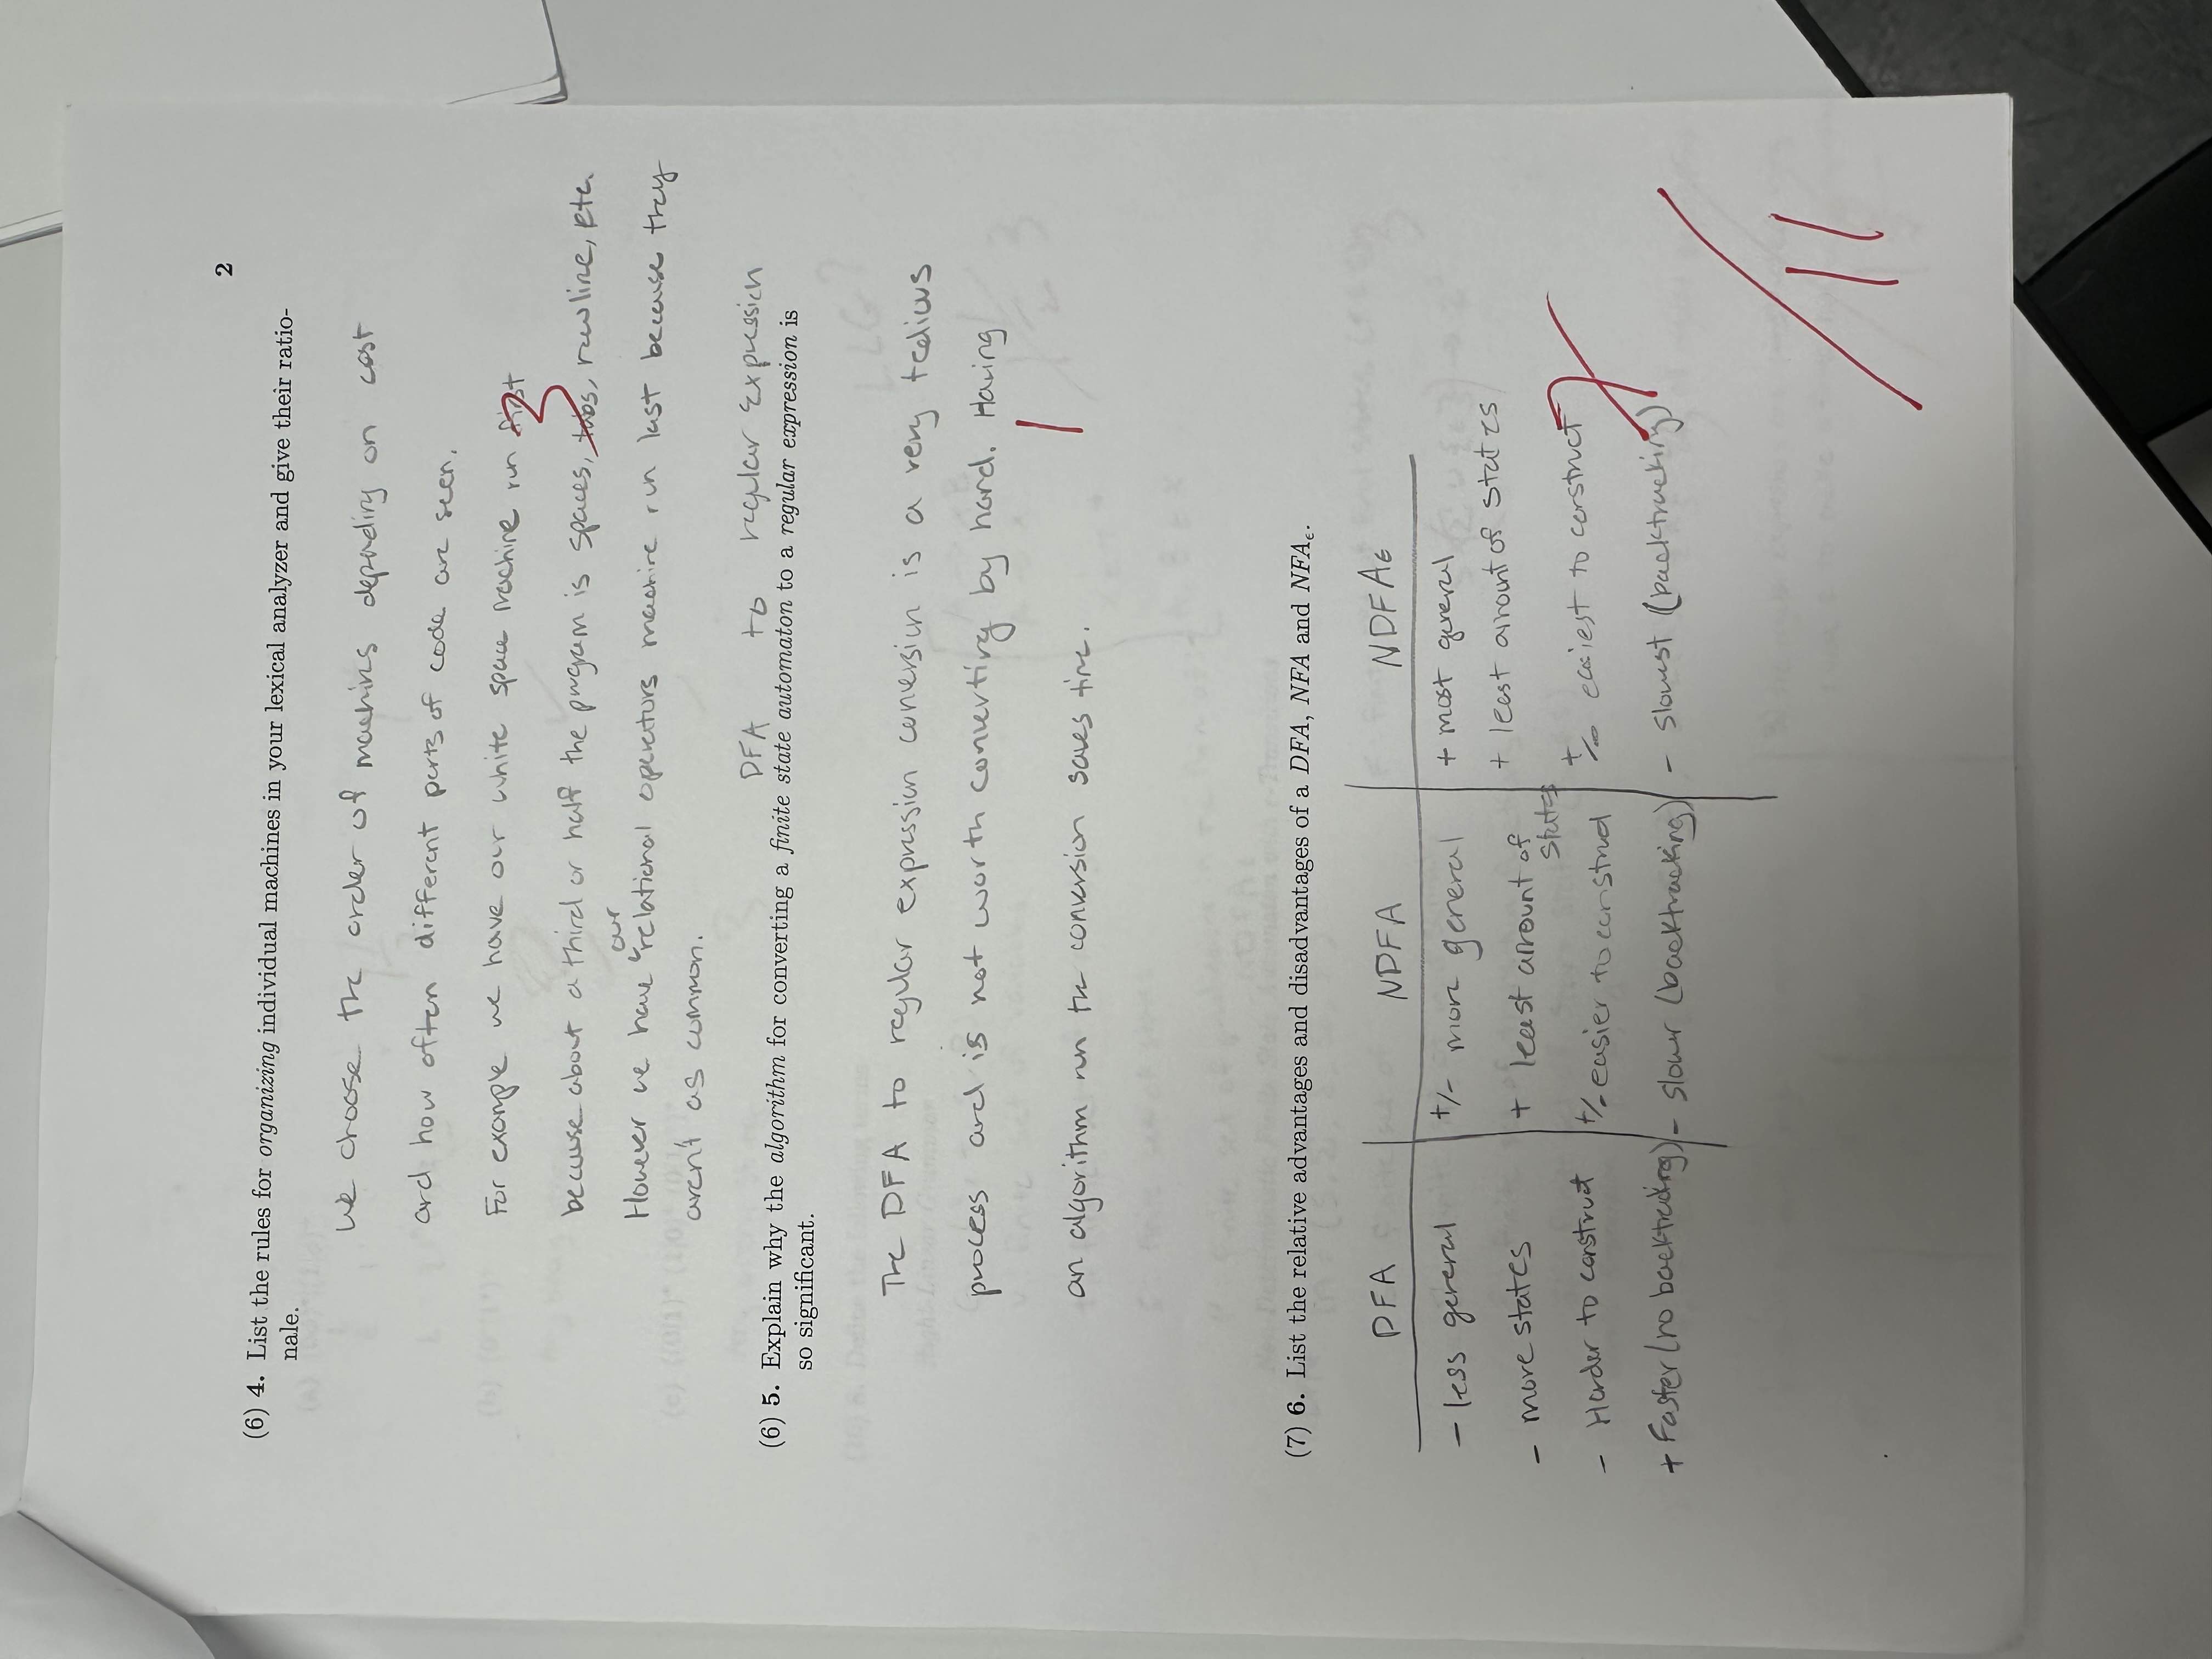 2
(6) 4. List the rules for organizing individual machines in your lexical analyzer and give their ratio-
nale.
We choose the order of machines depending on cost
and how often different parts of code are seen.
For example we have our white space machine run first
3
because about a third or half the program is spaces, tabs, newline, etc.
our
However we have relational operators machine run last because they
aren't as common.
DFA to regular expression
(6) 5. Explain why the algorithm for converting a finite state automaton to a regular expression is
so significant.
The DFA to regular expression conversion is a very tedious
process and is not worth converting by hand. Having
1
an algorithm run the conversion saves time.
(7) 6. List the relative advantages and disadvantages of a DFA, NFA and NFAε.
DFA NDFA NDFAε
- less general +/- more general + most general
- more states + least amount of states + least amount of states
- Harder to construct +/- easier to construct +/- easiest to construct
7
+ Faster (no backtracking) - slower (backtracking) - slowest (backtracking)
/11